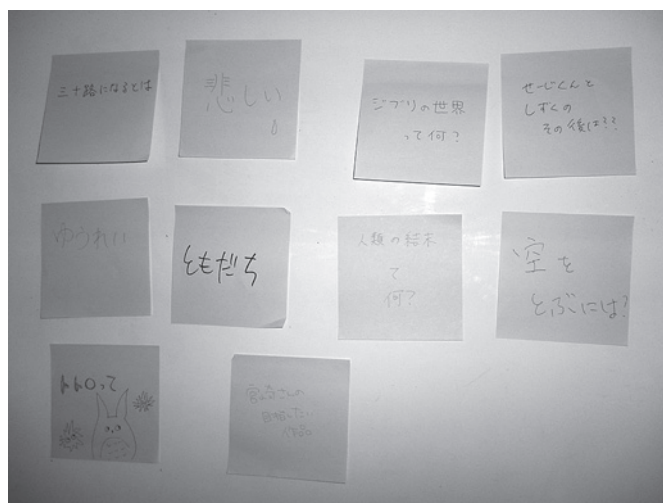 三十路になるとは
悲しい
ジブリの世界
って何?
せーじくんと
しずくの
その後は??
ゆうれい
ともだち
人類の結末
て
何?
空を
とぶには?
トトロって
宮崎さんの
作品